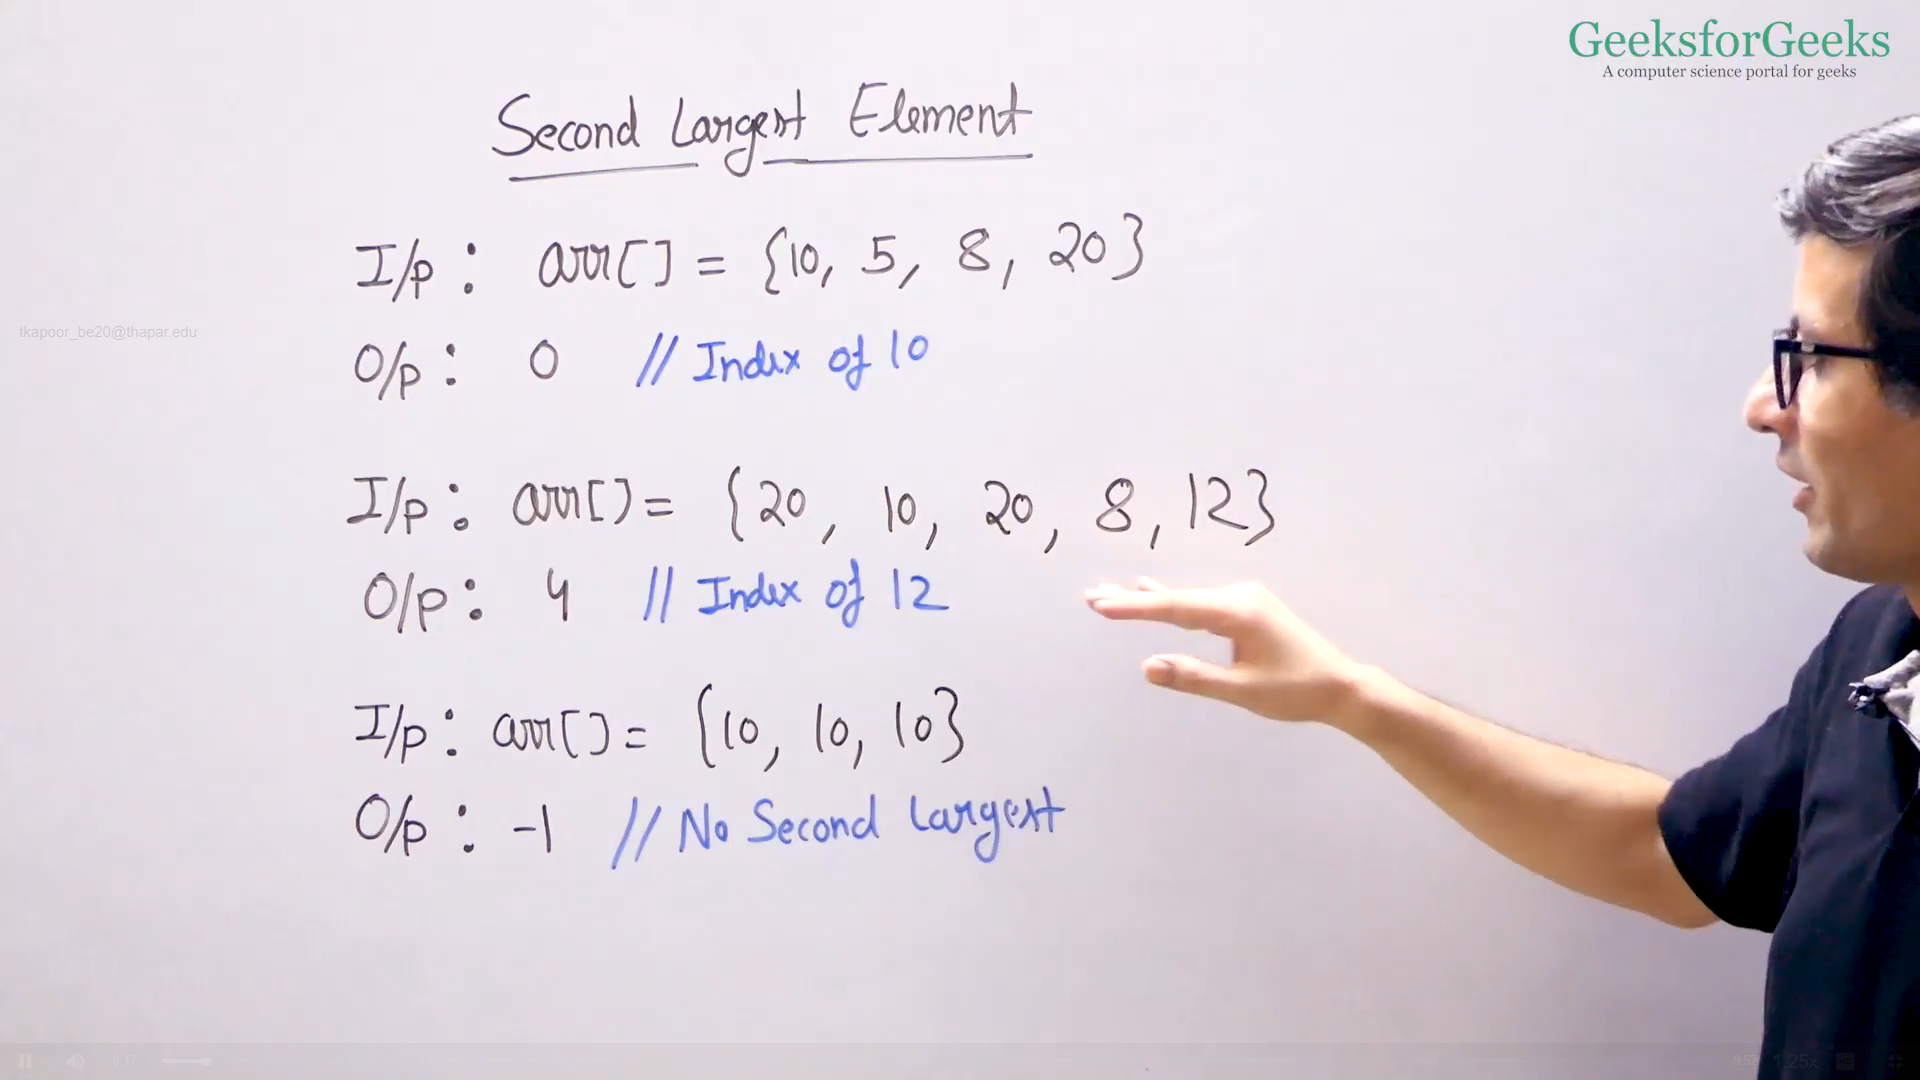 GeeksforGeeks
A computer science portal for geeks
Second Largest Element
I/p : arr[] = {10, 5, 8, 20}
tkapoor_be20@thapar.edu
O/p : 0 // Index of 10
I/p : arr[] = {20, 10, 20, 8, 12}
O/p : 4 // Index of 12
I/p : arr[] = {10, 10, 10}
O/p : -1 // No Second Largest
0:17
1.25x